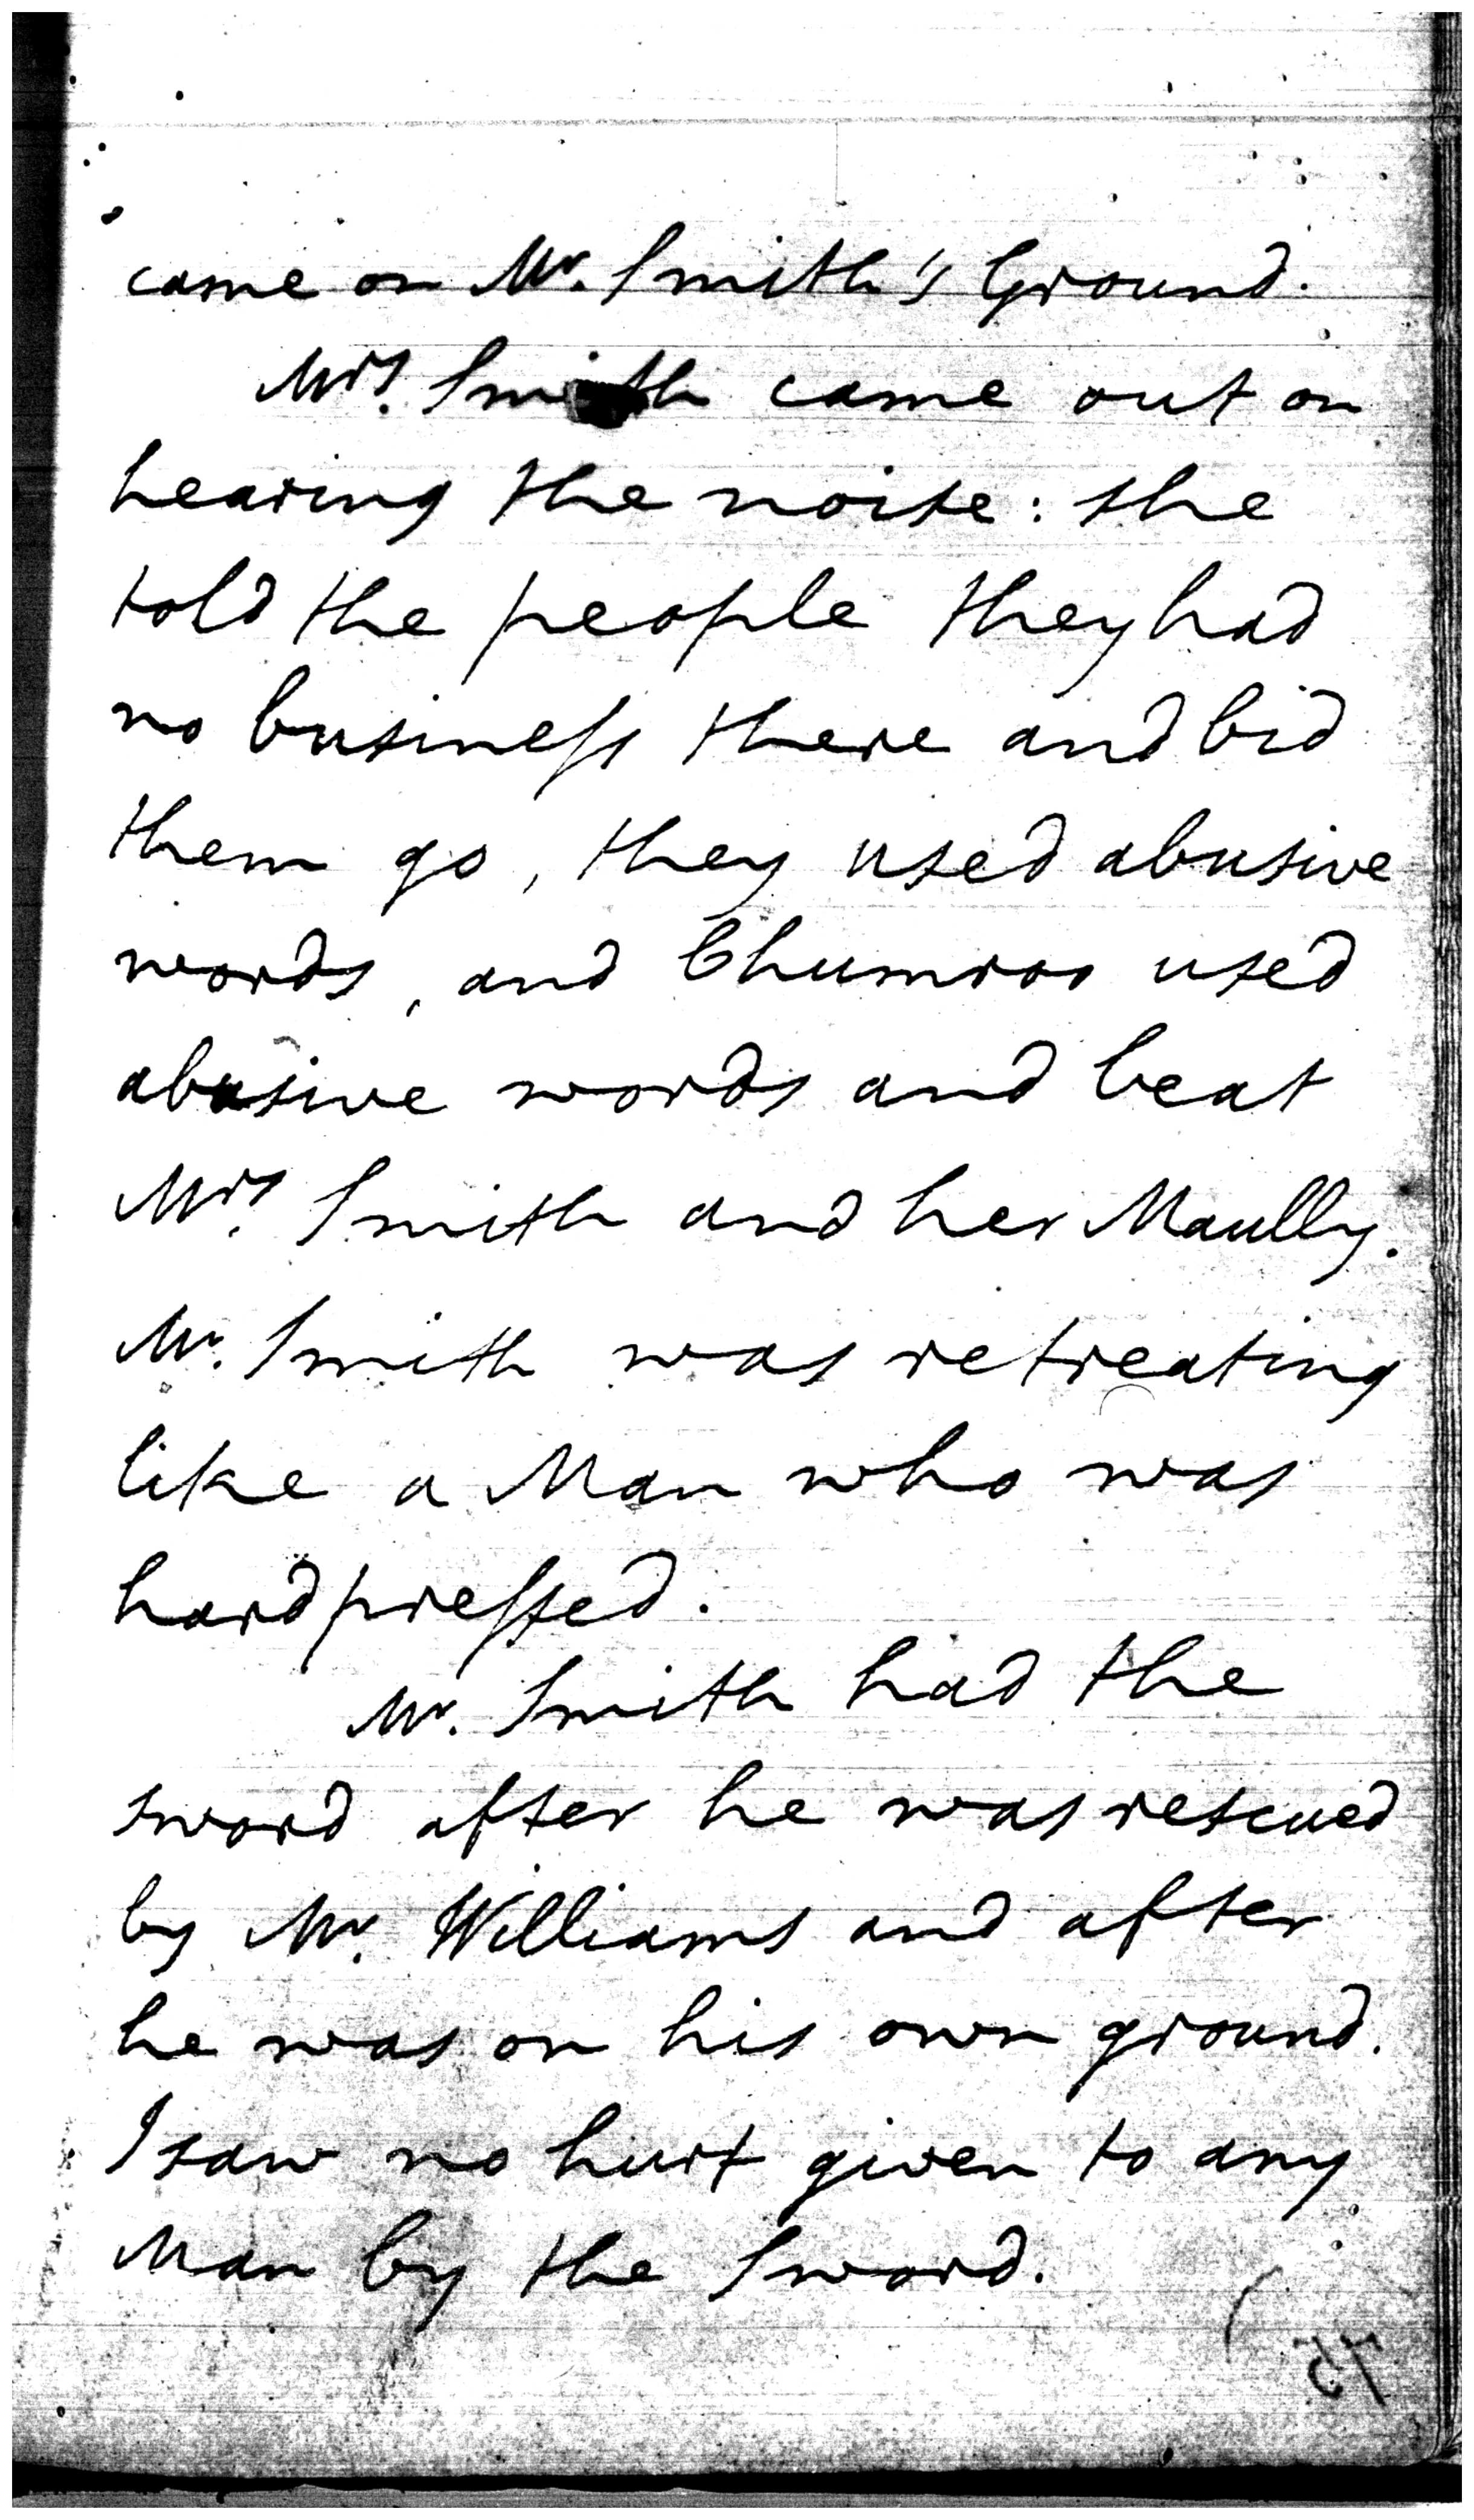 came on Mr. Smith's Ground.
Mrs. Smith came out on
hearing the noise: she
told the people they had
no business there and bid
them go, they used abusive
words, and Chumroo used
abusive words and beat
Mrs. Smith and her Maully.
Mr. Smith was retreating
like a Man who was
hard pressed.
Mr. Smith had the
sword after he was rescued
by Mr. Williams and after
he was on his own ground.
I saw no hurt given to any
Man by the Sword.
75